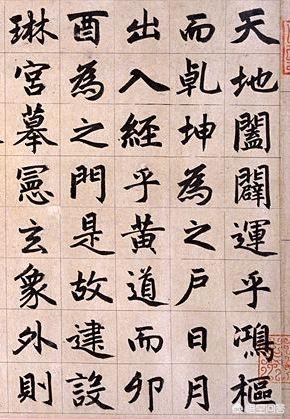 天地闔闢運乎鴻樞
而乹坤為之戶日月
出入經乎黃道而卯
酉為之門是故建設
琳宮摹憲玄象外則
悟空问答